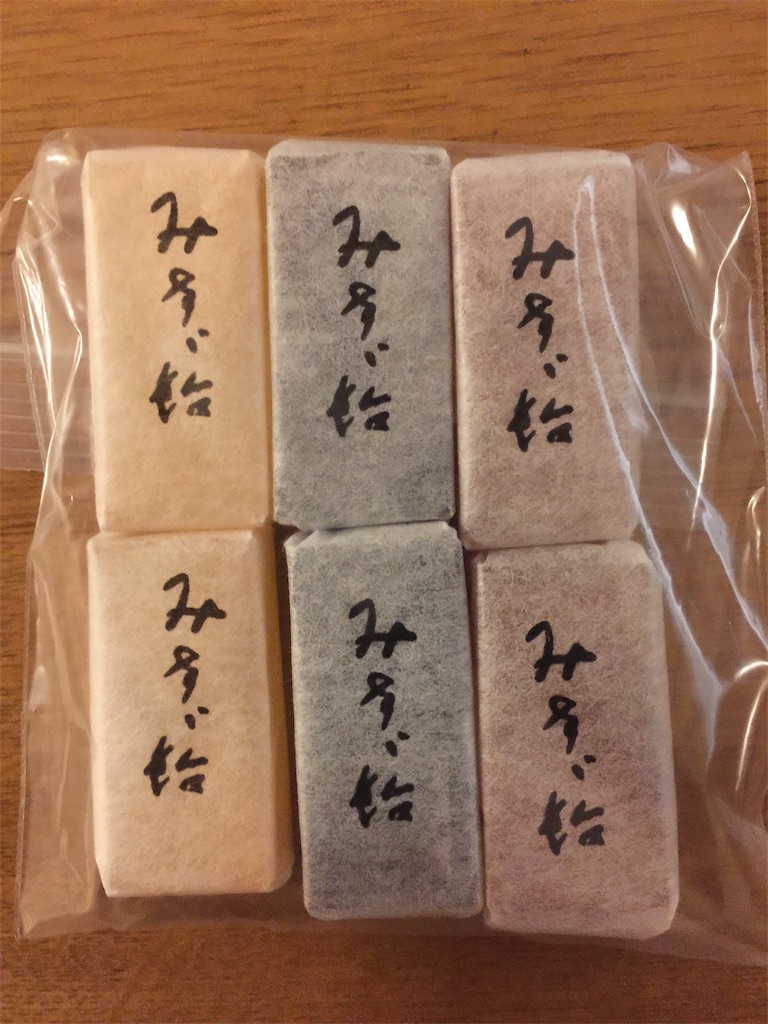 みすゞ飴
みすゞ飴
みすゞ飴
みすゞ飴
みすゞ飴
みすゞ飴